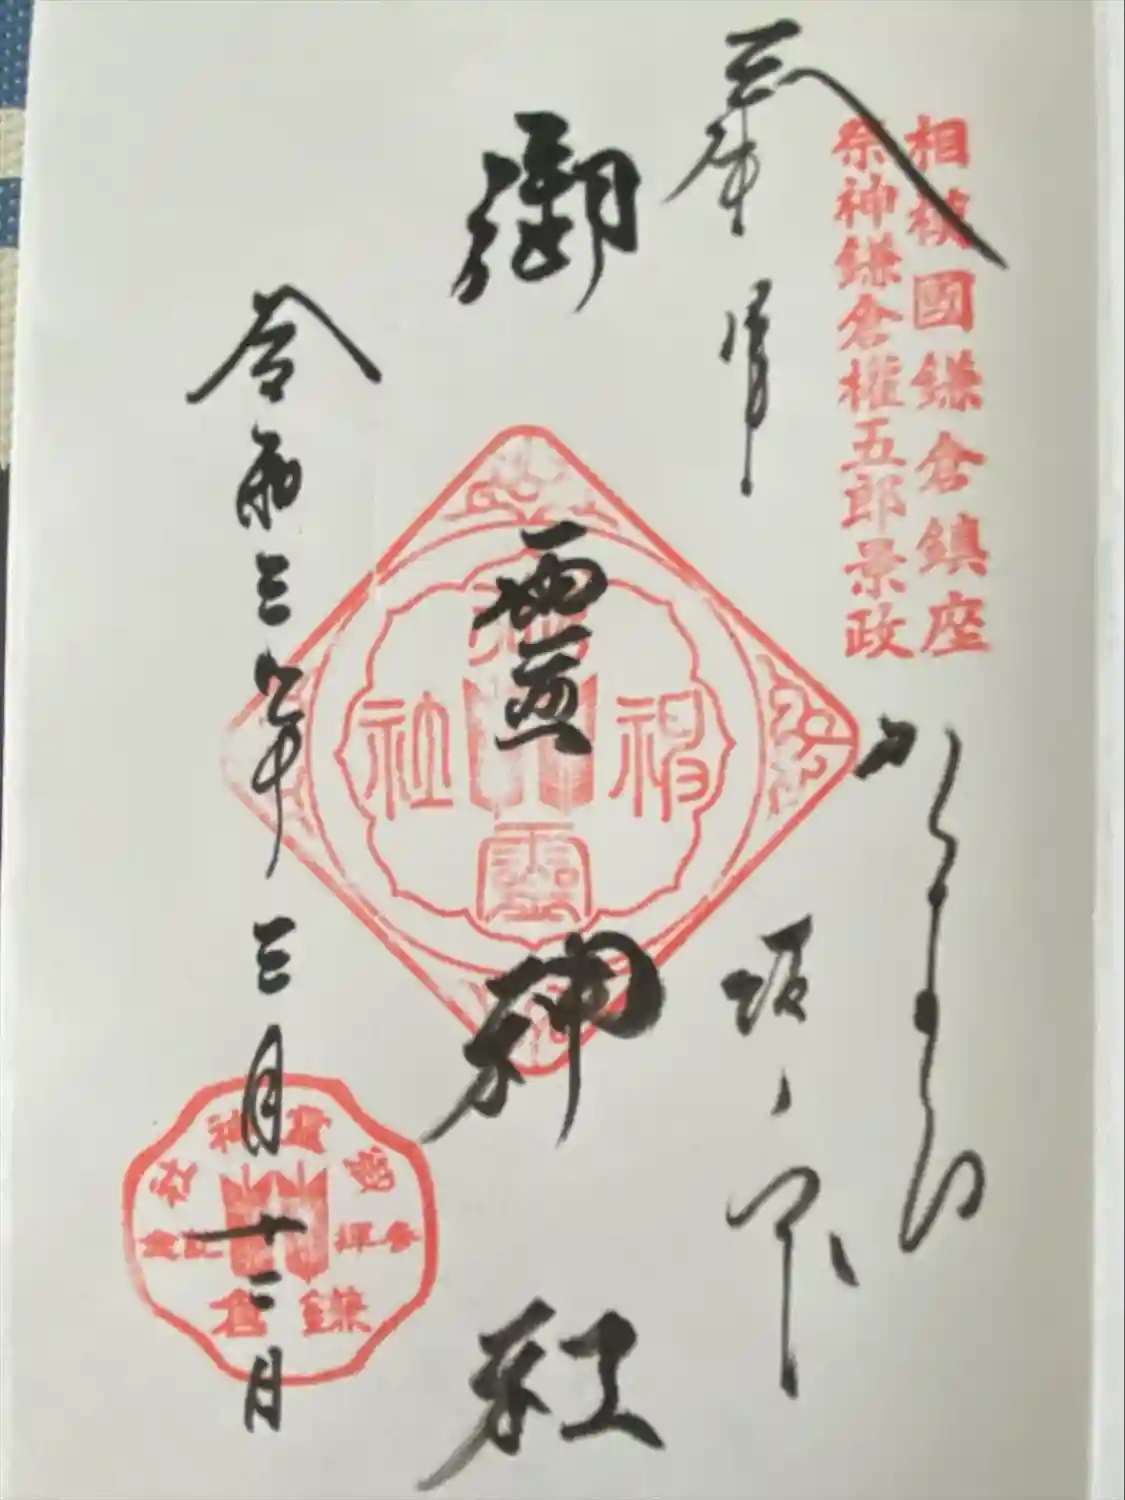 相模國鎌倉鎮座
祭神鎌倉權五郎景政
かまくら
坂ノ下
奉拝
御靈神社
御靈神社
令和三年三月十二日
御靈神社
参拝記念
鎌倉